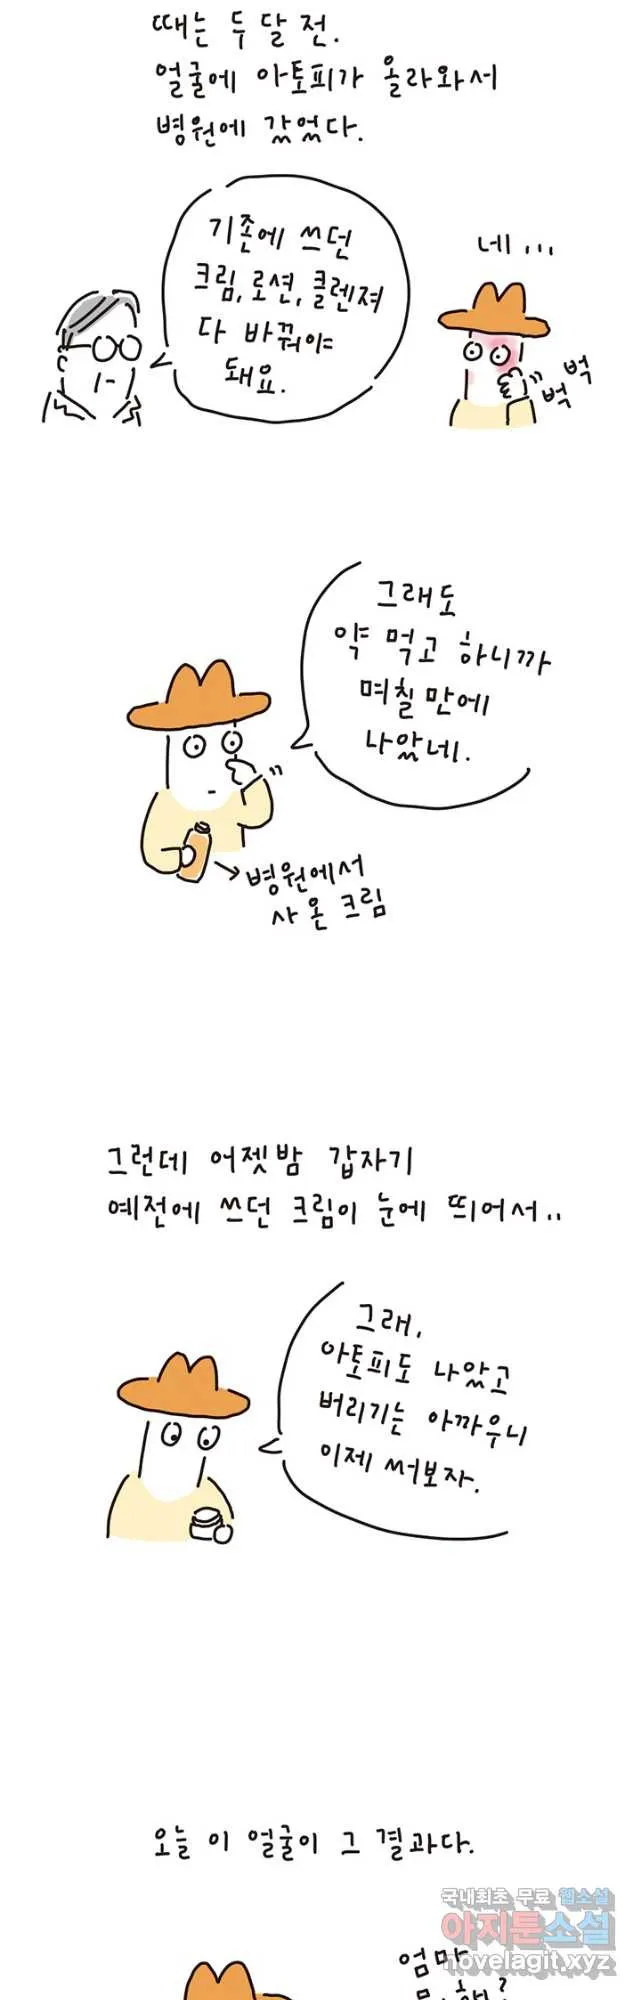 때는 두 달 전.
얼굴에 아토피가 올라와서
병원에 갔었다.
기존에 쓰던
크림, 로션, 클렌져
다 바꿔야
돼요.
네...
벅
벅
그래도
약 먹고 하니까
며칠 만에
나았네.
병원에서
사 온 크림
그런데 어젯밤 갑자기
예전에 쓰던 크림이 눈에 띄어서..
그래,
아토피도 나았고
버리기는 아까우니
이제 써보자.
오늘 이 얼굴이 그 결과다.
국내최초 무료 웹소설
아지툰소설
novelagit.xyz
엄마